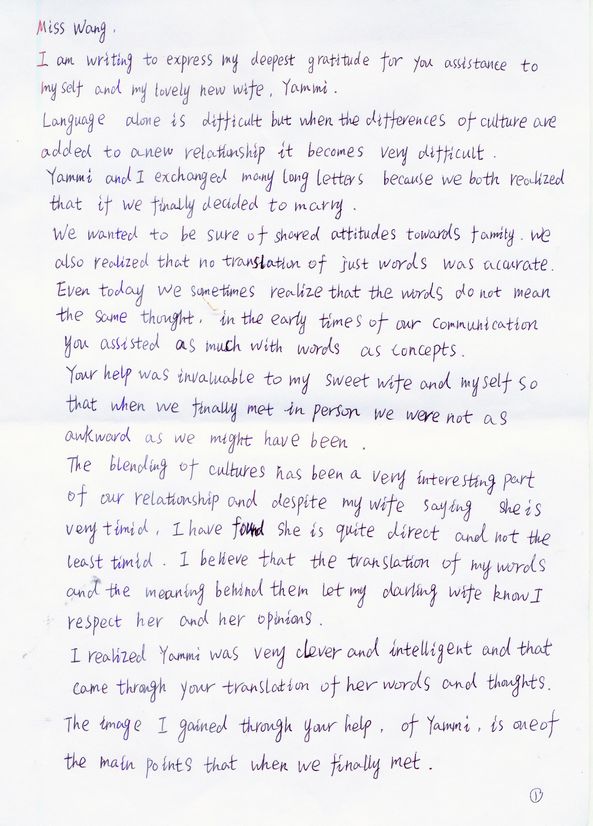 Miss Wang.
I am writing to express my deepest gratitude for you assistance to
myself and my lovely new wife, Yammi.
Language alone is difficult but when the differences of culture are
added to a new relationship it becomes very difficult.
Yammi and I exchanged many long letters because we both realized
that if we finally decided to marry.
We wanted to be sure of shared attitudes towards family. We
also realized that no translation of just words was accurate.
Even today we sometimes realize that the words do not mean
the same thought. in the early times of our communication
you assisted as much with words as concepts.
Your help was invaluable to my sweet wife and myself so
that when we finally met in person we were not as
awkward as we might have been.
The blending of cultures has been a very interesting part
of our relationship and despite my wife saying she is
very timid, I have found she is quite direct and not the
least timid. I believe that the translation of my words
and the meaning behind them let my darling wife know I
respect her and her opinions.
I realized Yammi was very clever and intelligent and that
came through your translation of her words and thoughts.
The image I gained through your help, of Yammi, is one of
the main points that when we finally met.
①